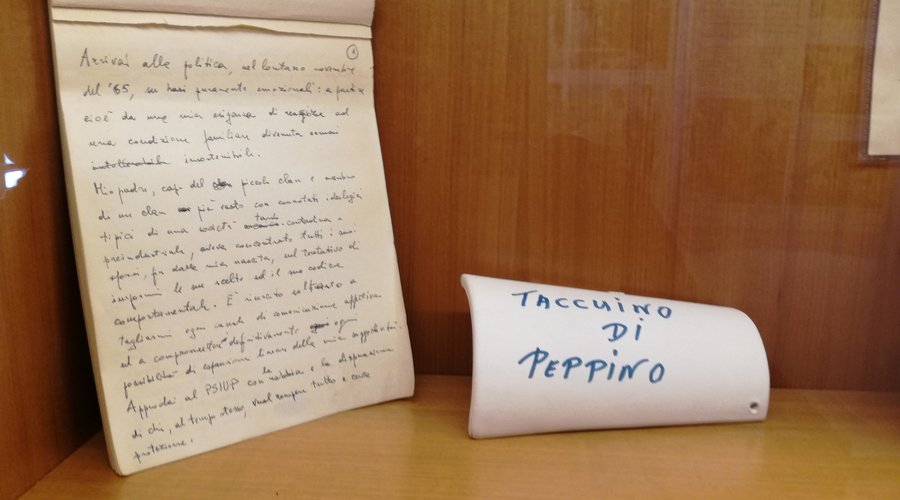 1
Arrivai alla politica, nel lontano novembre
del '65, su basi puramente emozionali: a partire
cioè da una mia esigenza di reagire ad
una condizione familiare divenuta ormai
intollerabile insostenibile.
Mio padre, capo del piccolo clan e membro
di un clan più vasto con connotati ideologici
tipici di una società tardo contadina e
preindustriale, aveva concentrato tutti i suoi
sforzi, fin dalla mia nascita, nel tentativo di
impormi le sue scelte ed il suo codice
comportamentale. È riuscito soltanto a
tagliarmi ogni canale di comunicazione affettiva
ed a compromettere definitivamente ogni
possibilità di espansione lineare della mia soggettività.
Approdai al PSIUP con la rabbia e la disperazione
di chi, al tempo stesso, vuol rompere tutto e cerca
protezione.
TACCUINO
DI
PEPPINO